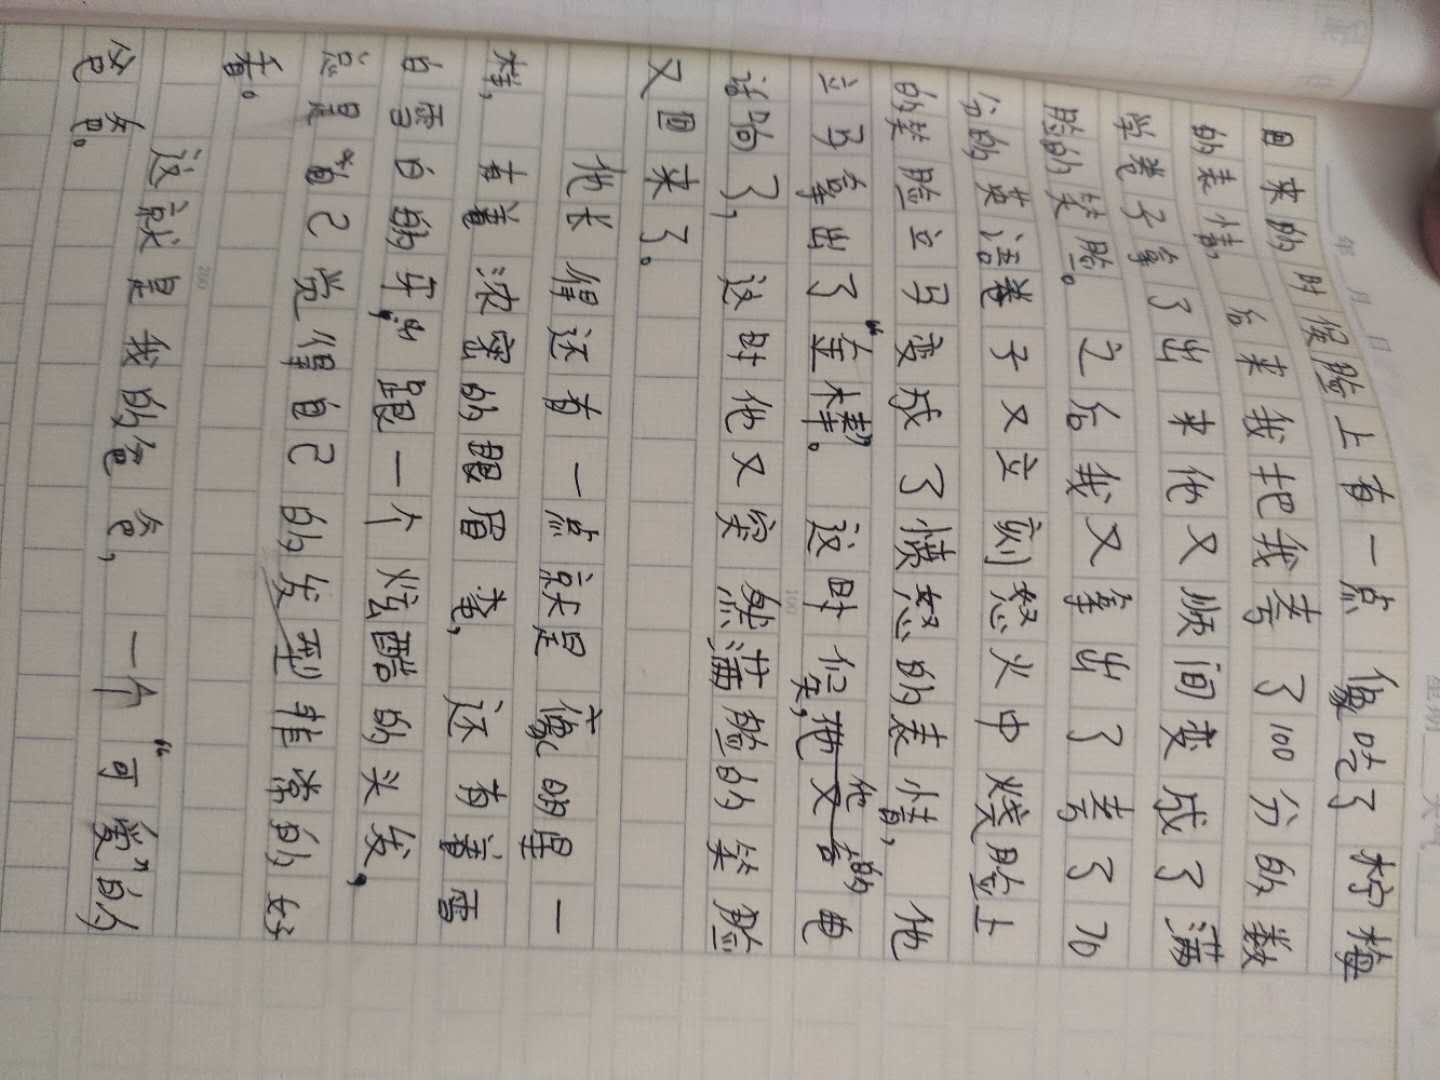 年 月 日
星期 天气
回来的时候脸上有一点像吃了柠檬
的表情，后来我把我考了100分的数
学卷子拿了出来他又顺间变成了满
脸的笑脸。之后我又拿出了考了70
分的英语卷子又立刻怒火中烧脸上
的笑脸立马变成了愤怒的表情，他
立马拿出了“金棒”。这时他的电
话响了，这时他又突然满脸的笑脸
又回来了。
他长得还有一点就是像明星一
样，有着浓密的眼眉毛，还有着雪
白雪白的牙，跟一个炫酷的头发，
总是“自己觉得自己的发型非常的好
看。
这就是我的爸爸，一个“可爱”的
爸爸。
100
200